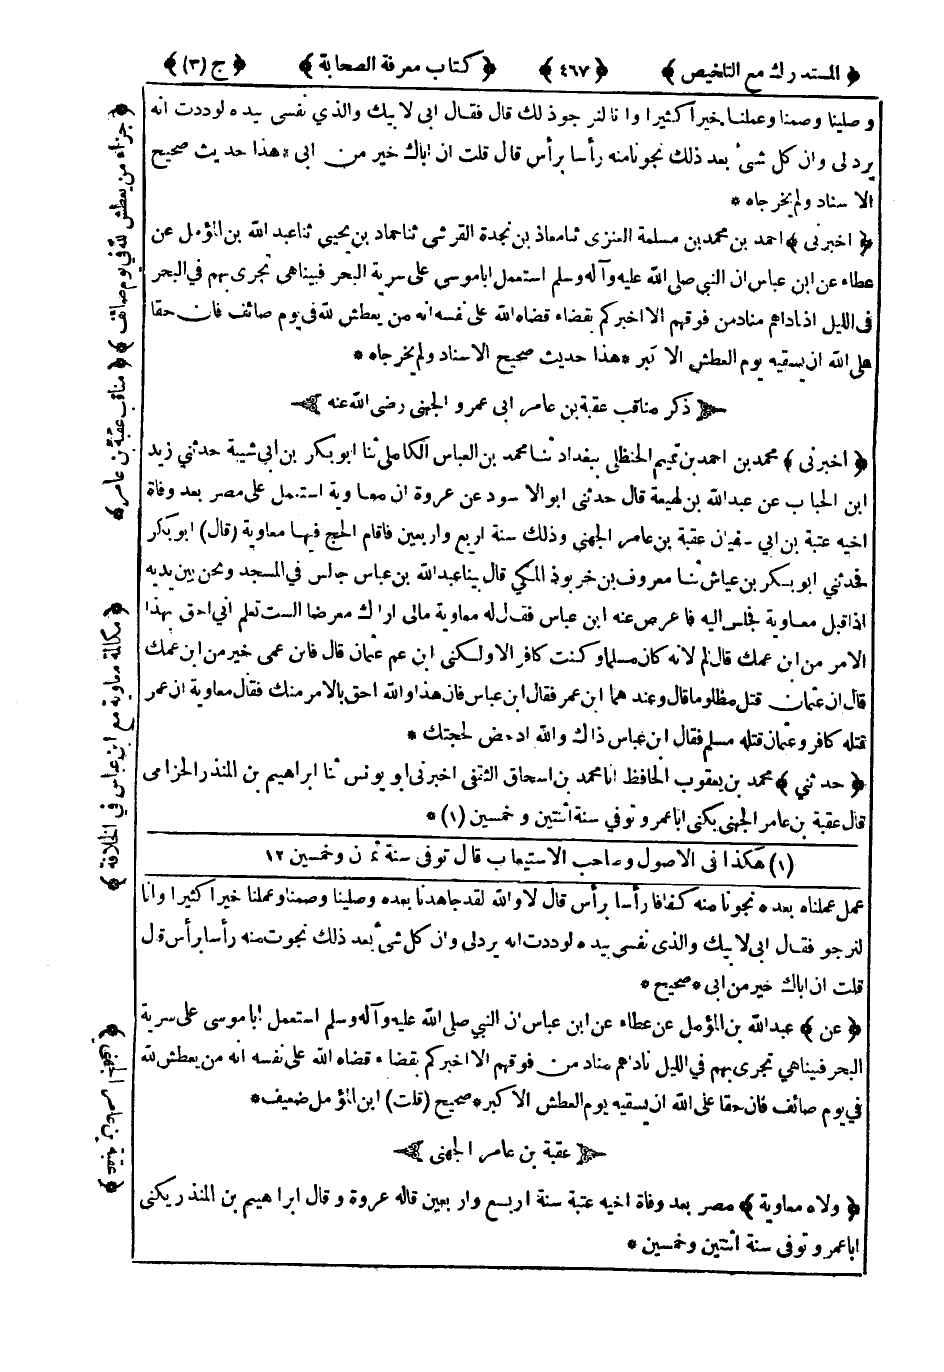 ﴿ المستدرك مع التلخيص ﴾ ﴿ ٤٦٧ ﴾ ﴿ كتاب معرفة الصحابة ﴾ ﴿ ج (٣) ﴾
وصلينا وصمنا وعملنا خيرا كثيرا وانا لنرجو ذلك قال فقال ابى لابيك والذي نفسى بيده لوددت انه
يرد لى وان كل شئ بعد ذلك نجونا منه رأسا برأس قال قلت ان اباك خير من ابى * هذا حديث صحيح
الاسناد ولم يخرجاه *
﴿ اخبرنى ﴾ احمد بن محمد بن مسلمة العنزى ثنا معاذ بن نجدة القرشى ثنا حماد بن يحيى ثنا عبد الله بن المؤمل عن
عطاء عن ابن عباس ان النبي صلى الله عليه وآله وسلم استعمل اباموسى على سرية البحر فبينا هى تجرى بهم في البحر
فى الليل اذ ناداهم مناد من فوقهم الا اخبركم بقضاء قضاه الله على نفسه انه من يعطش لله فى يوم صائف فان حقا
على الله ان يسقيه يوم العطش الاكبر * هذا حديث صحيح الاسناد ولم يخرجاه *
ذكر مناقب عقبة بن عامر ابى عمرو الجهنى رضى الله عنه
﴿ اخبرنى ﴾ محمد بن احمد بن تميم الحنظلى ببغداد ثنا محمد بن العباس الكاملى ثنا ابو بكر بن ابي شيبة حدثني زيد
ابن الحباب عن عبد الله بن لهيعة قال حدثنى ابو الاسود عن عروة ان معاوية استعمل على مصر بعد وفاة
اخيه عتبة بن ابي سفيان عقبة بن عامر الجهنى وذلك سنة اربع واربعين فاقام الحج فيها معاوية (قال) ابو بكر
فحدثني ابو بكر بن عياش ثنا معروف بن خربوذ المكي قال بينا عبد الله بن عباس جالس في المسجد ونحن بين يديه
اذ اقبل معاوية فجلس اليه فاعرض عنه ابن عباس فقال له معاوية مالى اراك معرضا الست تعلم انى احق بهذا
الامر من ابن عمك قال لم لانه كان مسلما وكنت كافر الا ولكنى ابن عم عثمان قال فابن عمى خير من ابن عمك
قال ان عثمان قتل مظلوما قال وعندهما ابن عمر فقال ابن عباس فان هذا والله احق بالامر منك فقال معاوية ان عمر
قتله كافر وعثمان قتله مسلم فقال ابن عباس ذاك والله ادحض لحجتك *
﴿ حدثني ﴾ محمد بن يعقوب الحافظ انا محمد بن اسحاق الثقفى اخبرنى ابو يونس ثنا ابراهيم بن المنذر الحزامى
قال عقبة بن عامر الجهنى يكنى اباعمرو توفي سنة اثنتين وخمسين (١) *
(١) هكذا فى الاصول وصاحب الاستيعاب قال توفى سنة ثمان وخمسين ١٢
عمل عملناه بعده نجونا منه كفافا رأسا برأس قال لا والله لقد جاهدنا بعده وصلينا وصمنا وعملنا خيرا كثيرا وانا
لنرجو فقال ابى لابيك والذى نفسى بيده لوددت انه يرد لى وان كل شئ بعد ذلك نجوت منه رأسا برأس قال
قلت ان اباك خير من ابى * صحيح *
﴿ عن ﴾ عبد الله بن المؤمل عن عطاء عن ابن عباس ان النبي صلى الله عليه وآله وسلم استعمل اباموسى على سرية
البحر فبينا هي تجرى بهم في الليل ناداهم مناد من فوقهم الا اخبركم بقضاء قضاه الله على نفسه انه من يعطش لله
في يوم صائف فان حقا على الله ان يسقيه يوم العطش الاكبر * صحيح (قلت) ابن المؤمل ضعيف *
عقبة بن عامر الجهنى
﴿ ولاه معاوية ﴾ مصر بعد وفاة اخيه عتبة سنة اربع واربعين قاله عروة وقال ابراهيم بن المنذر يكنى
اباعمرو توفى سنة اثنتين وخمسين *
﴿ جزاء من يعطش لله في يوم صائف ﴾
﴿ مناقب عقبة بن عامر ﴾
﴿ مكالمة معاوية مع ابن عباس في الخلافة ﴾
﴿ عقبة بن عامر الجهنى ﴾